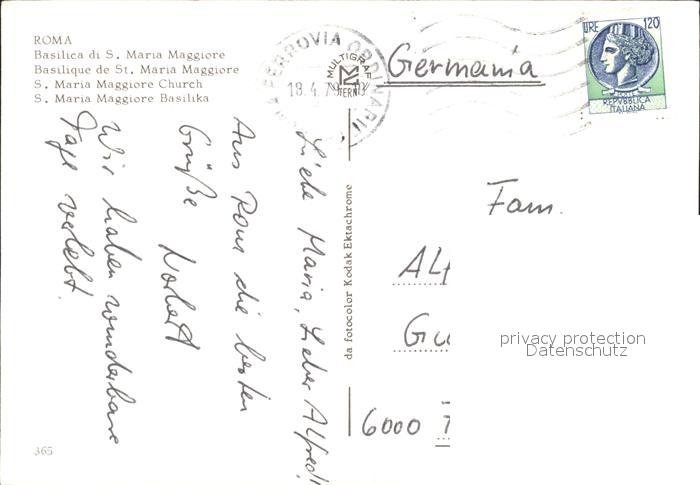 ROMA
Basilica di S. Maria Maggiore
Basilique de St. Maria Maggiore
S. Maria Maggiore Church
S. Maria Maggiore Basilika
FERROVIA ORDINARIE
18.4.79
MULTIGRAF
TERNI
Germania
LIRE 120
REPVBBLICA
ITALIANA
Liebe Maria, Lieber Alfred!
Aus Rom die besten
Grüße Norbert
Wir haben wunderbare
Tage verlebt.
da fotocolor Kodak Ektachrome
Fam.
6000
privacy protection
Datenschutz
365